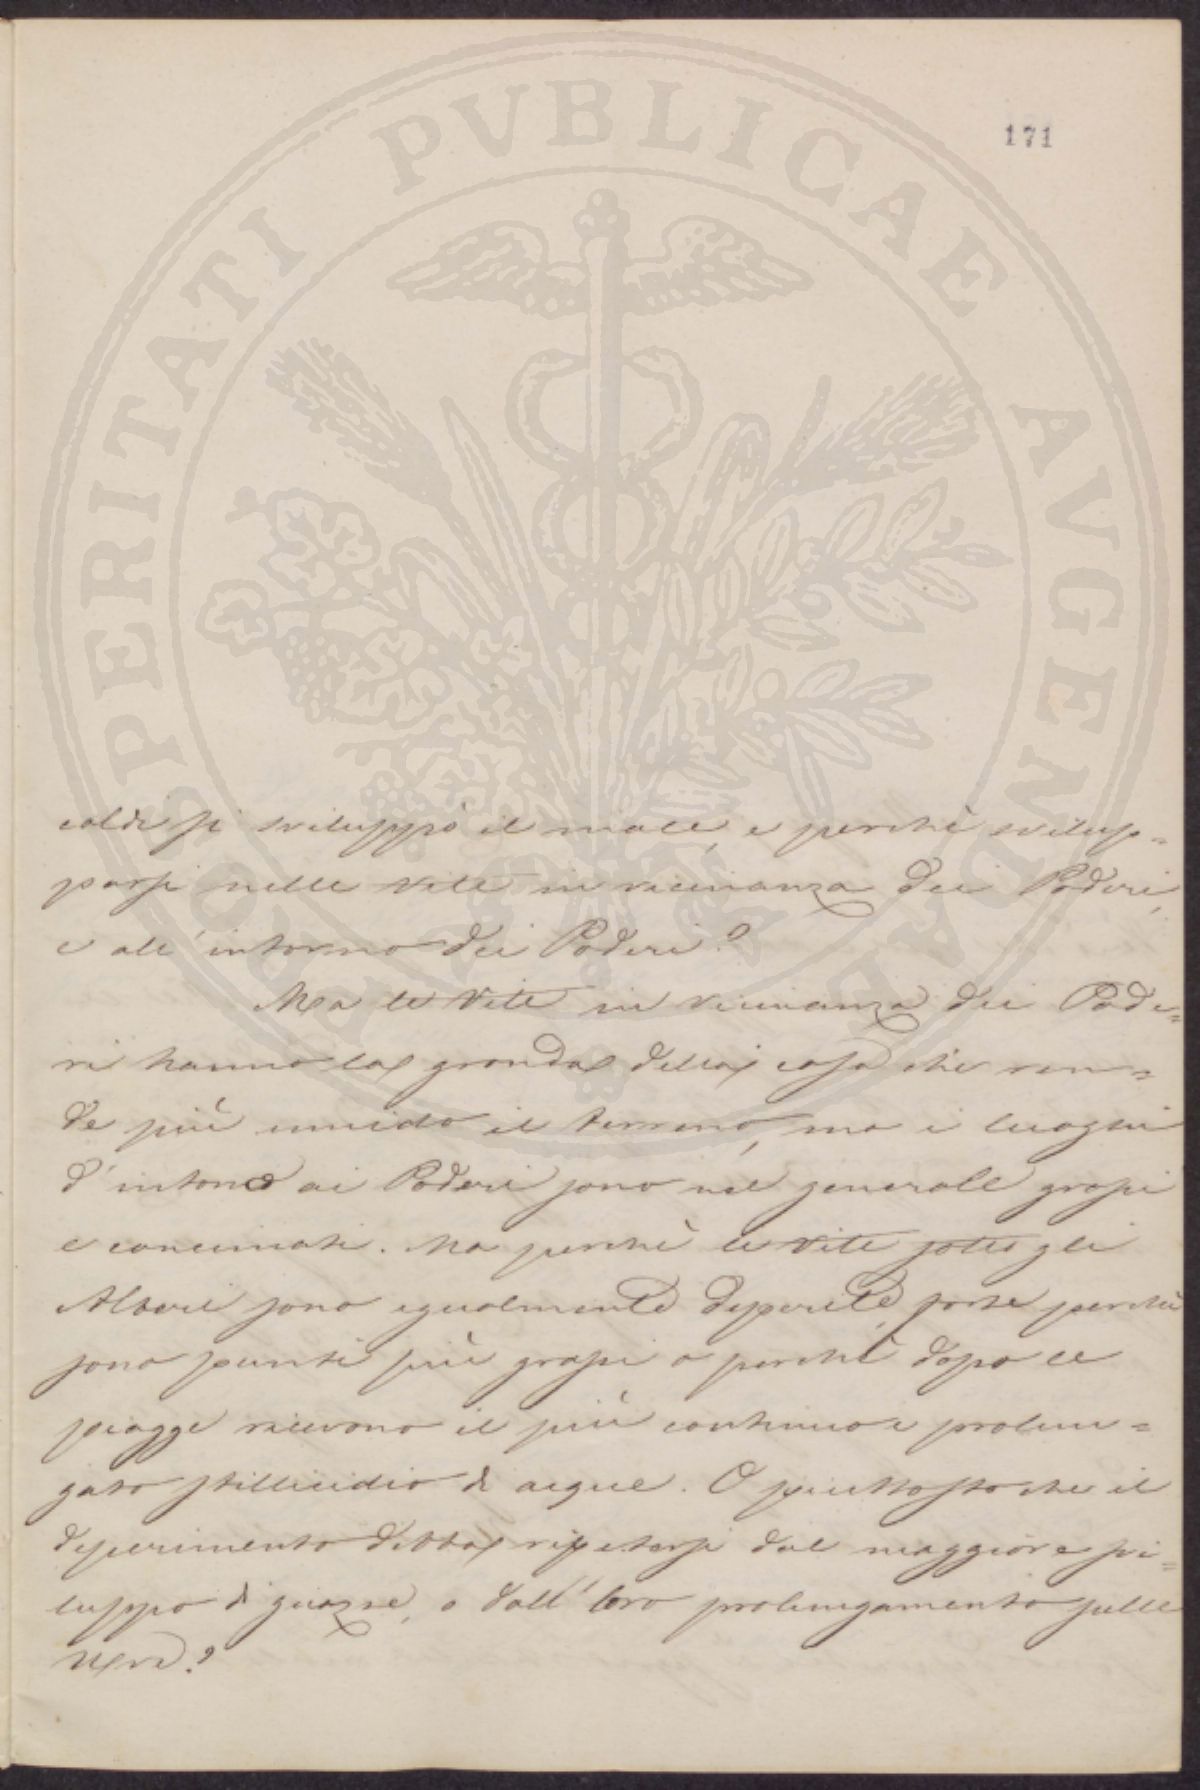 PROSPERITATI PVBLICAE AVGENDAE
171
caldi si sviluppò il male, e perchè svilup=
parsi nelle vite in vicinanza dei Poderi,
e all'intorno dei Poderi?
Ma le Vite in vicinanza dei Pode=
ri hanno la gronda della casa che ren=
de più umido il terreno, ma i luoghi
d'intorno ai Poderi sono nel generale grassi
e concimati. Ma perchè le vite sotto gli
Alberi sono egualmente deperite, forse perchè
sono punti più grassi o perchè dopo le
piogge ricevono il più continuo e prolun=
gato stillicidio di acque. O piuttosto che il
deperimento debba ripetersi dal maggiore svi=
luppo di guazze, o dall'loro prolungamento sulle